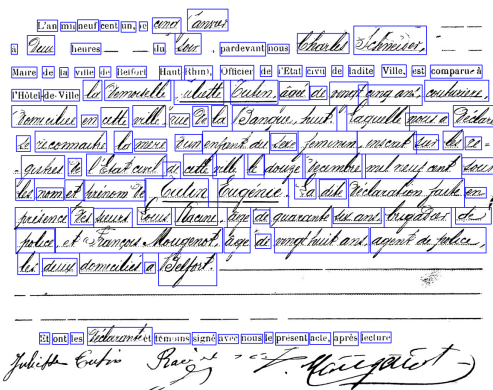 L'an mil neuf cent un, le cinq Janvier
à Deux heures du Soir, pardevant nous Charles Schmiser,
Maire de la ville de Belfort (Haut-Rhin), Officier de l'État civil de ladite Ville, est comparue à
l'Hôtel-de-Ville la Demoiselle Juliette Cutin, âgée de vingt cinq ans, couturière,
domiciliée en cette ville, rue de la Banque, huit. Laquelle nous a Déclaré
se reconnaître la mère d'un enfant du sexe féminin, inscrit sur les re-
gistres de l'État civil de cette ville, le douze Décembre mil neuf cent sous
les nom et prénom de Cutin Eugénie. La dite Déclaration faite en
présence des sieurs Racine, âgé de quarante six ans, brigadier de
police, et François Mougenot, âgé de vingt huit ans, agent de police,
les deux domiciliés à Belfort.
Et ont les Déclarante et témoins signé avec nous le présent acte, après lecture
Juliette Cutin Racine Mougenot